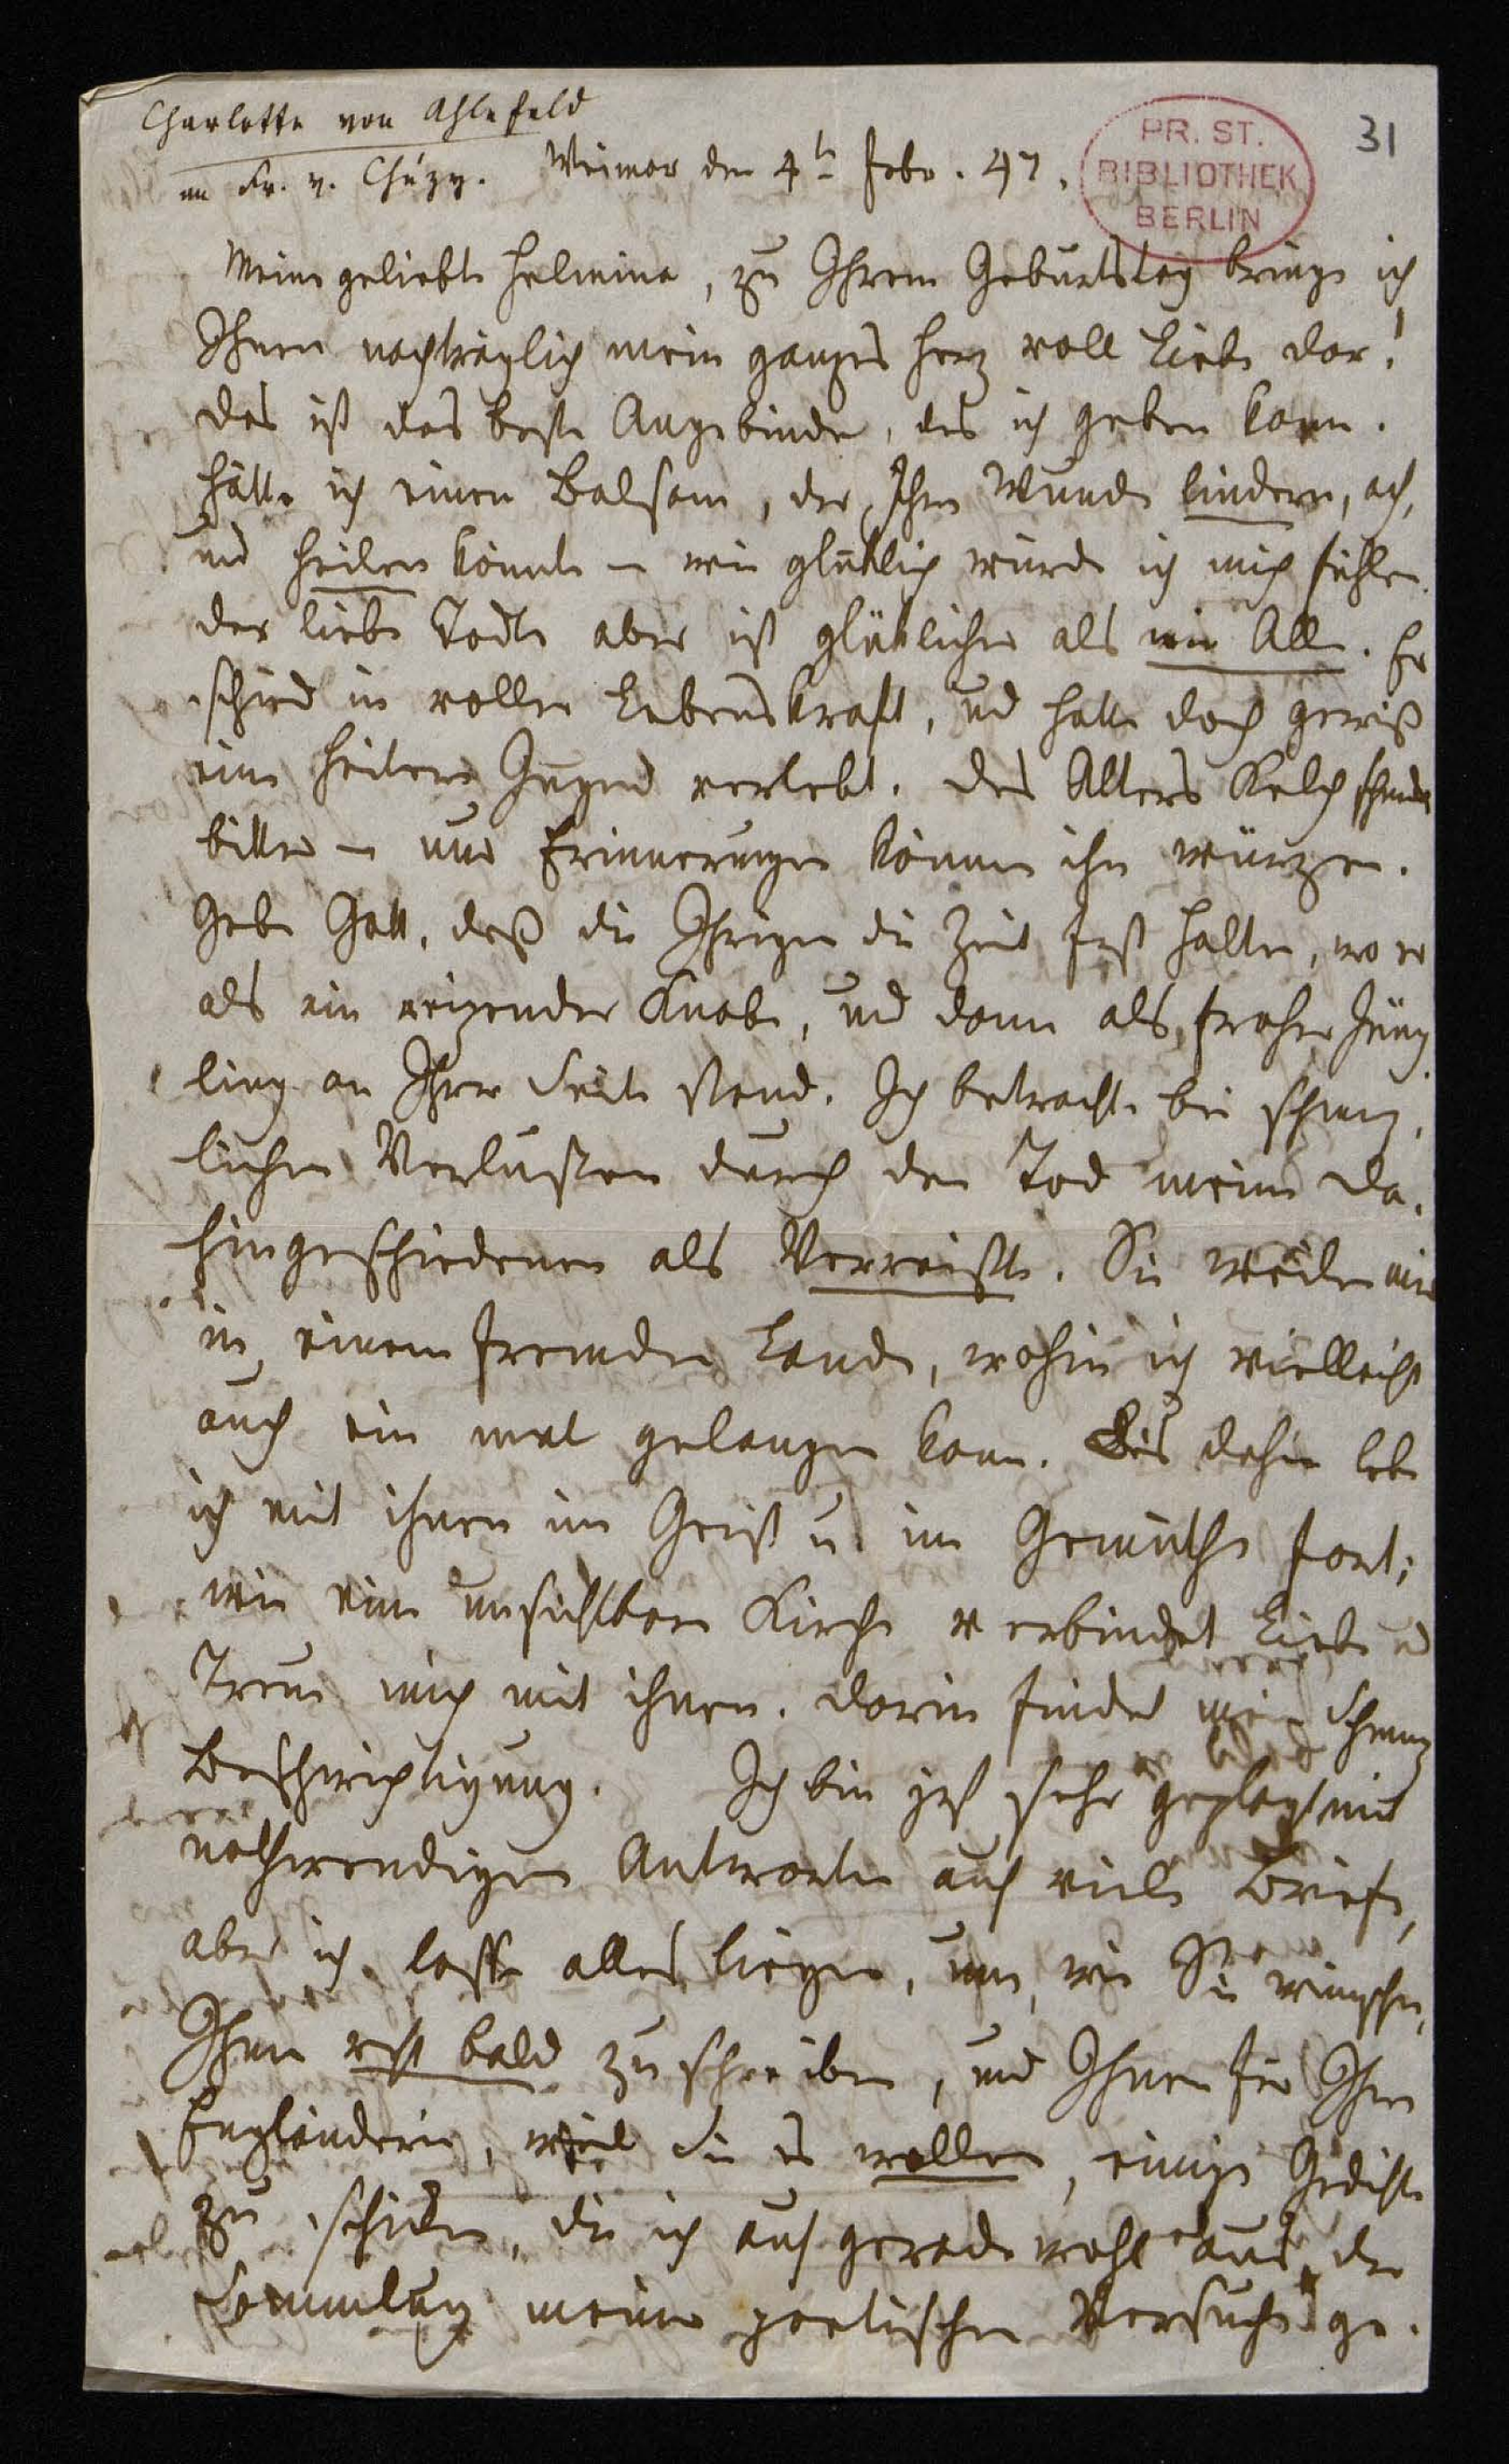 Charlotte von Ahlefeld
31
PR. ST.
BIBLIOTHEK
BERLIN
an Fr. v. Chézy. Weimar den 4t Febr. 47.
Meine geliebte Helmina, zu Ihrem Geburtstag bringe ich
Ihnen nachträglich mein ganzes Herz voll Liebe dar!
das ist das beste Angebinde, das ich geben kann.
Hätte ich einen Balsam, der Ihre Wunde lindern, ach,
und heilen könnte – wie glücklich würde ich mich fühlen.
der liebe Todte aber ist glücklicher als wir Alle. Er
schied in voller Lebenskraft, und hatte doch gewiß
eine heitere Jugend verlebt. Des Alters Kelch schmeckt
bitter – nur Erinnerungen können ihn würzen.
Gebe Gott, daß die Ihrigen die Zeit fest halten, wo er
als ein reizender Knabe, und dann als froher Jüng
ling an Ihrer Seite stand. Ich betrachte bei schmerz,
lichen Verlusten durch den Tod meine Da,
hingeschiedenen als Verreißte. Sie weilen mir
in einem fremden Lande, wohin ich vielleicht
auch ein mal gelangen kann. Bis dahin lebe
ich mit ihnen im Geist u. im Gemüthe fort;
wie eine unsichtbare Kirche verbindet Liebe u
Treue mich mit ihnen. darin findet mein Schmerz
Beschwichtigung. Ich bin jetzt sehr geplagt mit
nothwendigen Antworten auf viele Briefe,
aber ich lasse alles liegen, um, wie Sie wünschen,
Ihnen recht bald zu schreiben, und Ihnen für Ihre
Engländerin, weil Sie es wollen, einige Gedichte
zu schicken, die ich auf gerade wohl aus der
Sammlung meiner poetischen Versuche ge.